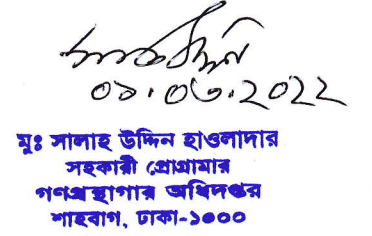 ০১.০৩.২০২২
মুঃ সালাহ উদ্দিন হাওলাদার
সহকারী প্রোগ্রামার
গণগ্রন্থাগার অধিদপ্তর
শাহবাগ, ঢাকা-১০০০